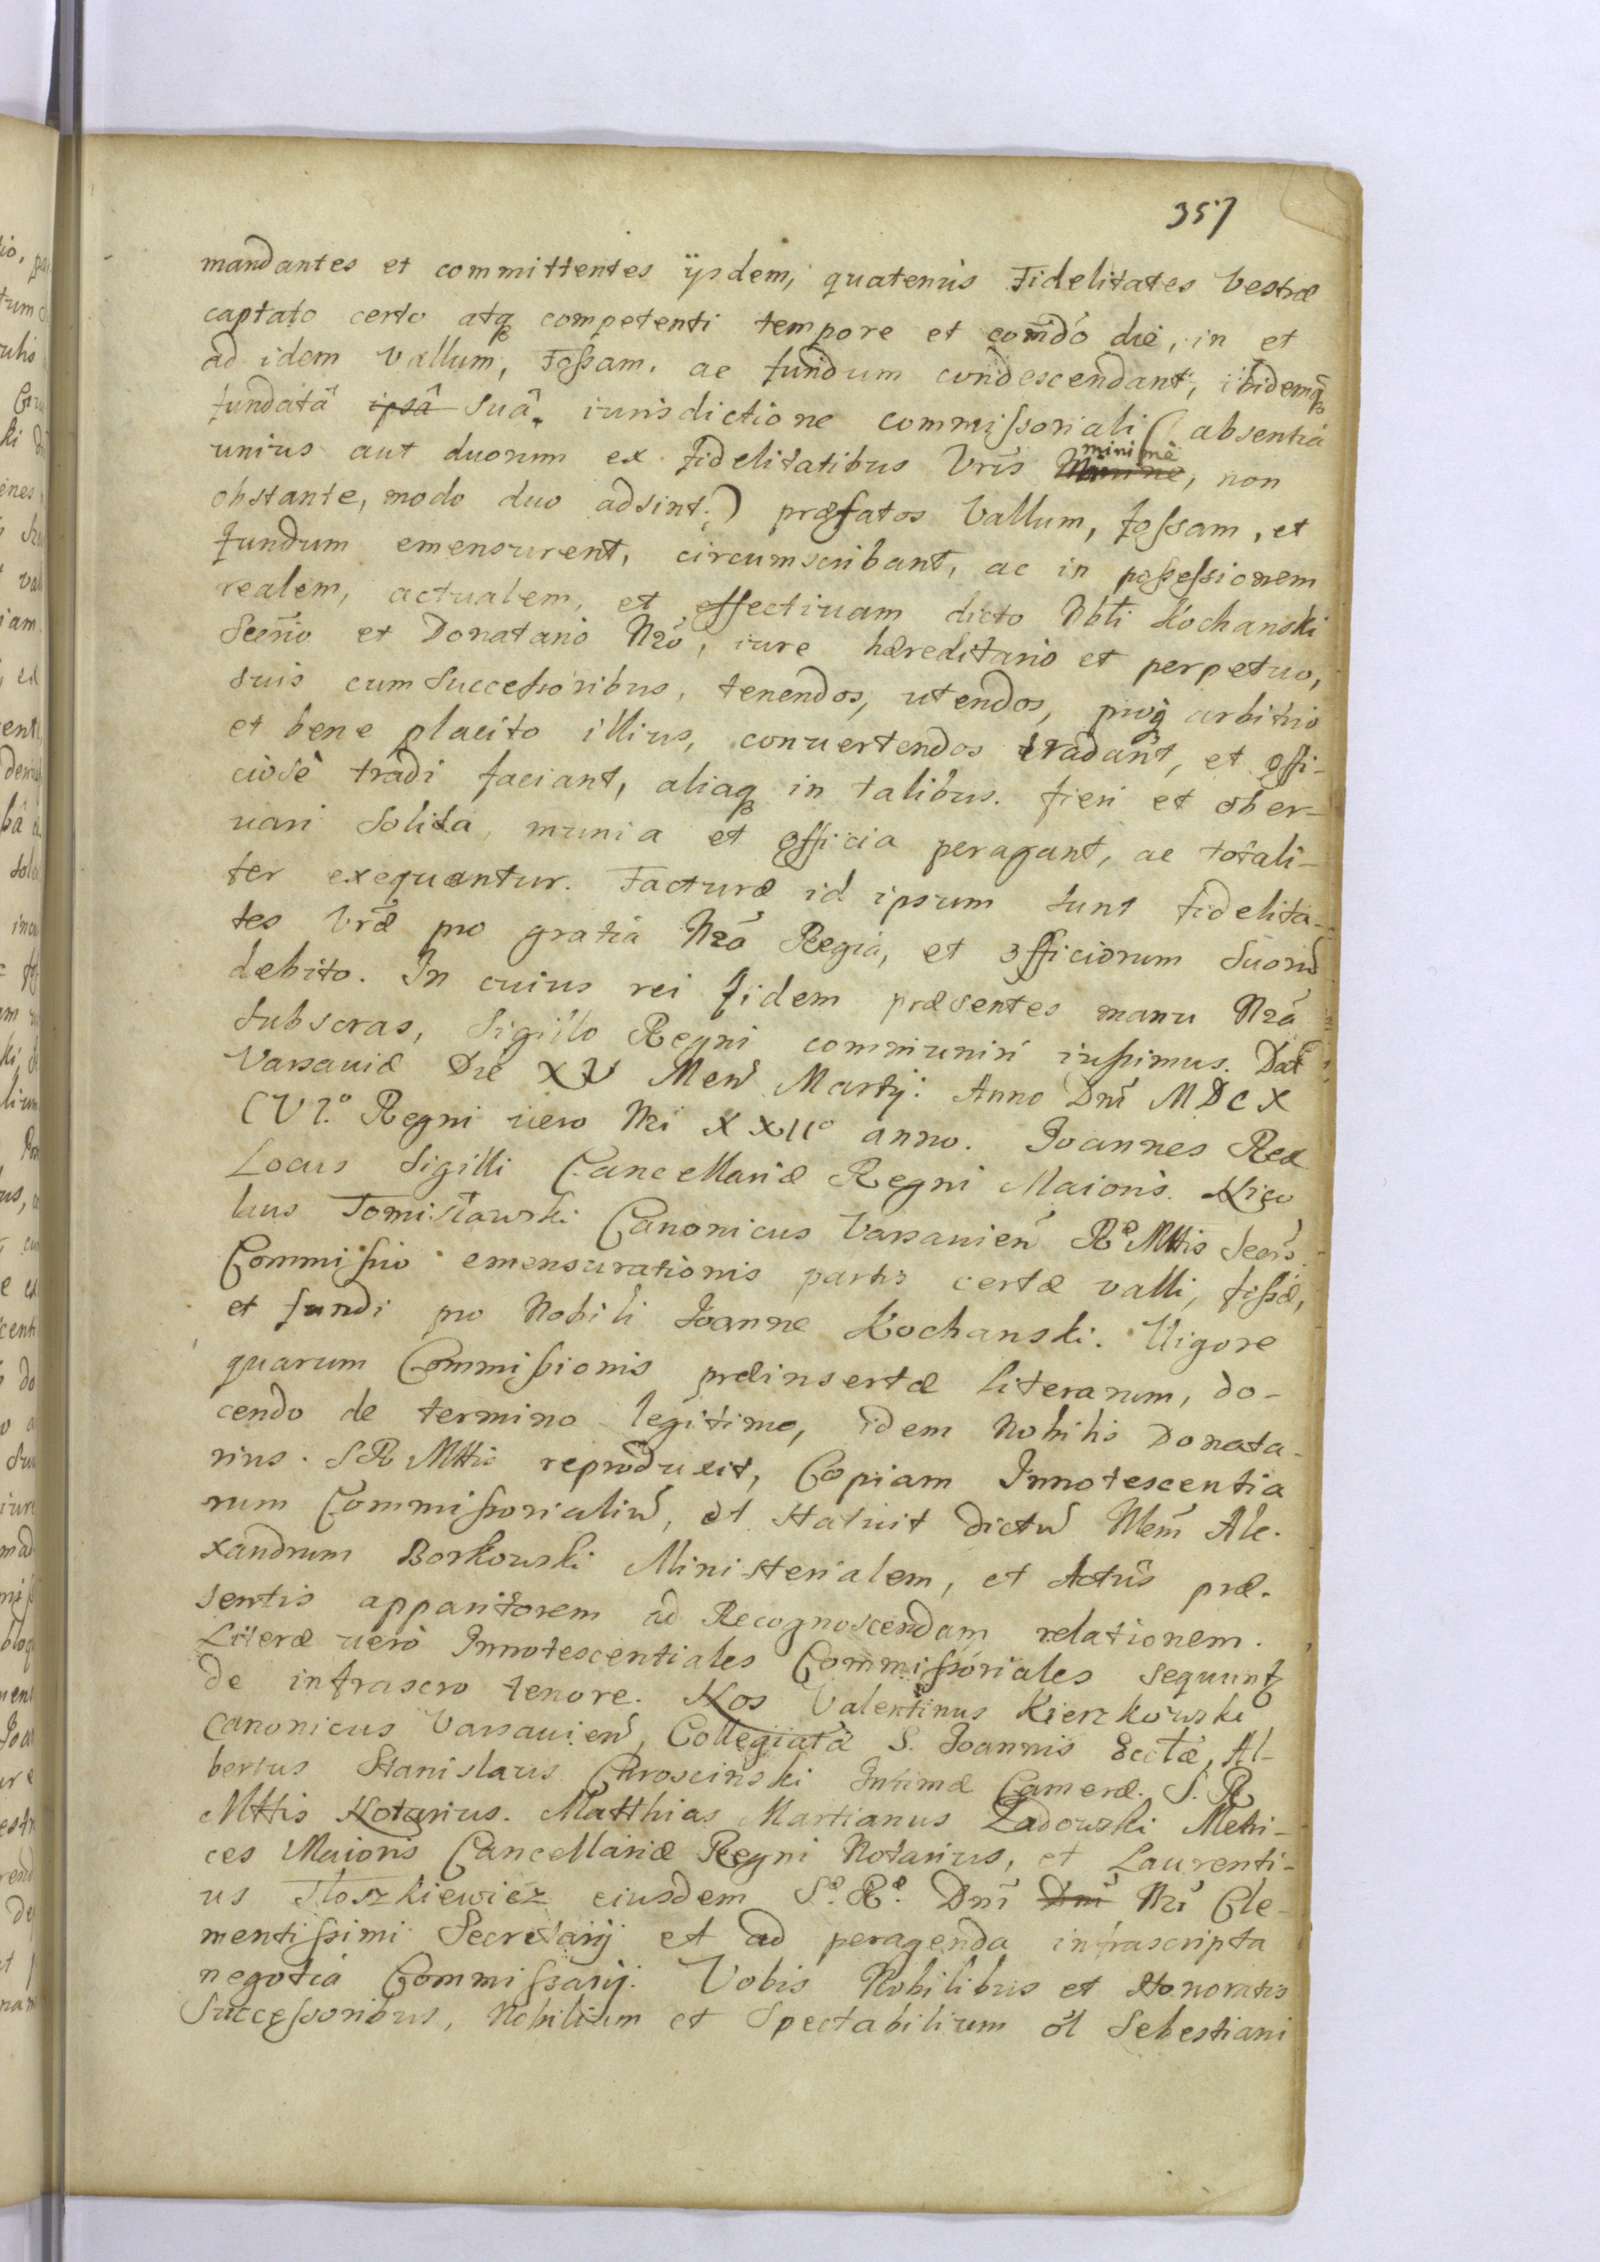 357
mandantes et committentes ijsdem, quatenùs Fidelitates Vestræ
captato certo atq competenti tempore et com̃do die, in et
ad idem Vallum, Foſsam, ac fundum condescendant, ibidemq
fundatâ ipsâ Suâ iurisdictione commiſsoriali (absentiâ
unius aut duorum ex fidelitatibus Vr̃is minimè, non
obstante, modo duo adsint:) præfatos Vallum, foſsam, et
fundum emensurent, circumscribant, ac in poſseſsionem
realem, actualem, et effectivam dicto Nbli Kochanski
Secr̃io et Donatario Nr̃o, iure hæreditario et perpetuo,
suis cum Succeſsoribus, tenendos, utendos, proq arbitrio
et bene placito illius, convertendos tradant, et offi-
ciosè tradi faciant, aliaq in talibus fieri et obser-
vari Solita, munia et officia peragant, ac totali-
ter exequantur. Facturæ id ipsum sunt fidelita-
tes Vr̃æ pro gratia Nr̃a Regia, et officiorum Suorũ
debito. In cuius rei fidem præsentes manu Nr̃a
Subscras, Sigillo Regni communiri iuſsimus. Dat
Varsaviæ Die XV Men̄ Martij: Anno Dn̄i MDCX
CVI.o Regni vero Nr̃i XXIIo anno. Joannes Rex
Locus Sigilli Cancellariæ Regni Maioris. Nico
laus Tomisławski Canonicus Varsavien̄ Re Mttis Secr̃s.
Commiſsio emensurationis partis certæ valli, foſsæ,
et fundi pro Nobili Joanne Kochanski. Vigore
quarum Commiſsionis præinsertæ literarum, do-
cendo de termino legitimo, idem Nobilis Donata-
rius SR Mttis reproduxit, Copiam Innotescentia
rum Commiſsorialiũ, et statuit dictũ Mem̃ Ale-
xandrum Borkowski Ministerialem, et Actûs præ-
sentis apparitorem ad Recognoscendam relationem.
Literæ verò Innotescentiales Commiſsoriales sequunt
de infrascro tenore. Nos Valentinus Kierzkowski
Canonicus Varsavien̄, Collegiatæ S. Joannis Ecclæ, Al-
bertus Stanislaus Chroscinski Intimæ Cameræ S. R
Mttis Notarius. Matthias Martianus Ładowski Metri-
ces Maioris Cancellariæ Regni Notarius, et Laurenti-
us Tłoszkiewicz eiusdem Se. Re. Dn̄i Dn̄i Nr̃i Cle-
mentiſsimi Secretarij et ad peragenda infrascripta
negotia Commiſsarij. Vobis Nobilibus et Honoratis
Succeſsoribus, Nobilium et Spectabilium ol Sebestiani